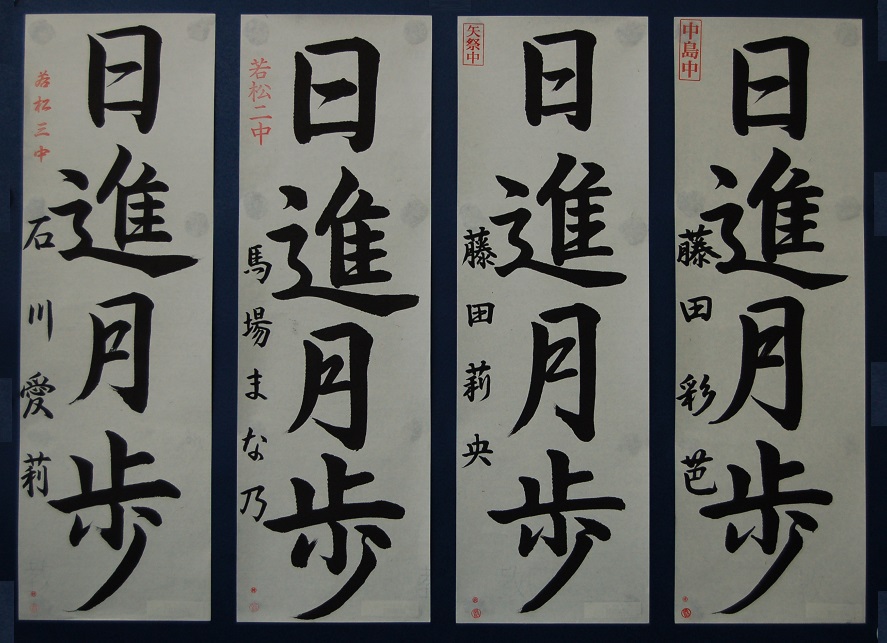 中島中
日進月歩
藤田彩芭
矢祭中
日進月歩
藤田莉央
若松二中
日進月歩
馬場まな乃
若松三中
日進月歩
石川愛莉